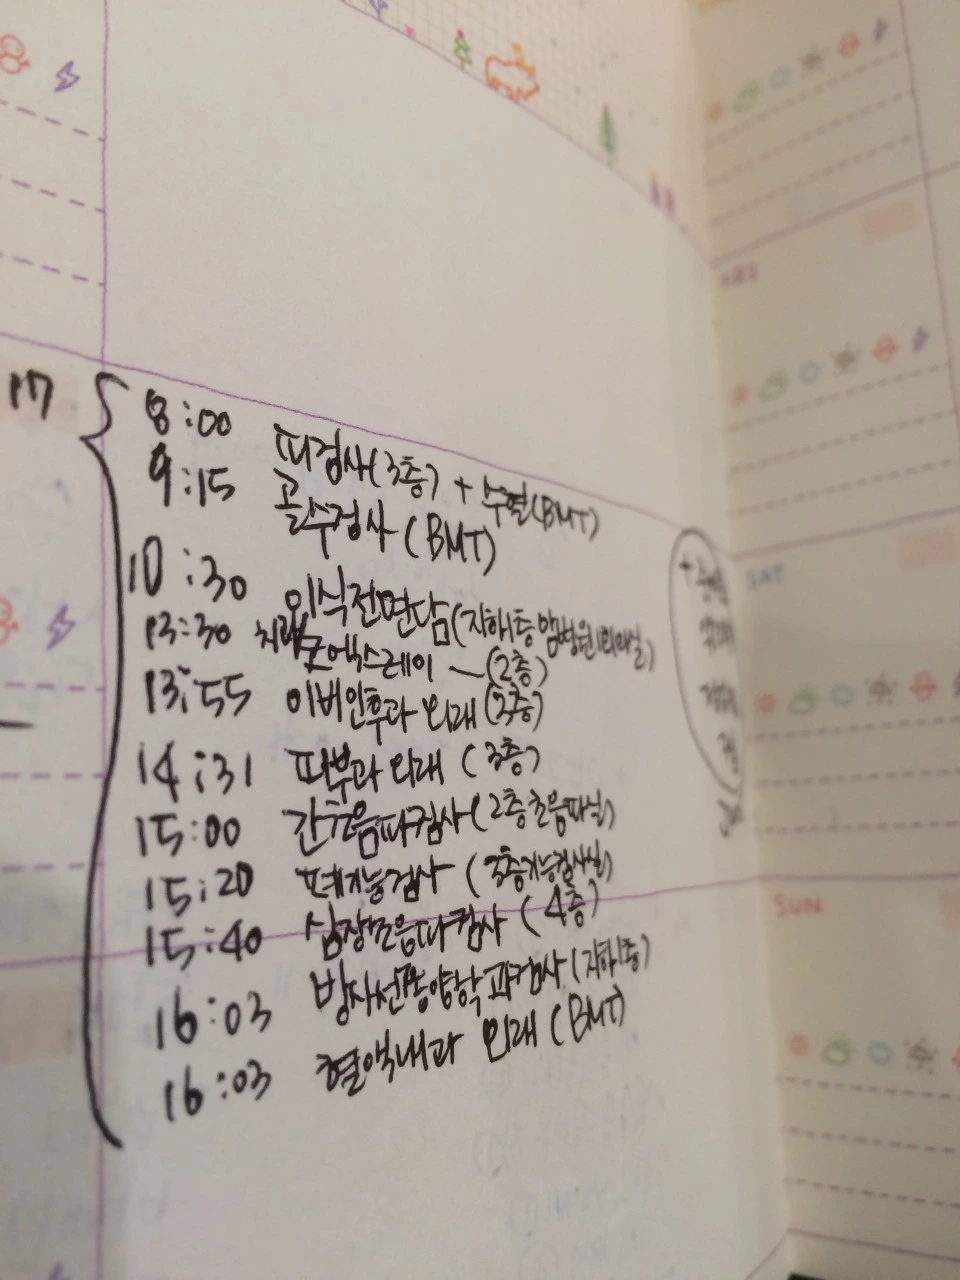 17
8:00 피검사(3층) + 수혈(BMT)
9:15 골수검사(BMT)
10:30 이식전면담(지하1층 암병원)
13:30 엑스레이 (2층)
13:55 이비인후과 외래(3층)
14:31 피부과 외래 (3층)
15:00 간초음파검사(2층초음파실)
15:20 폐기능검사 (3층기능검사실)
15:40 심장초음파검사 (4층)
16:03 방사선종양학과검사(지하1층)
16:03 혈액내과 외래 (BMT)
FRI
SAT
SUN